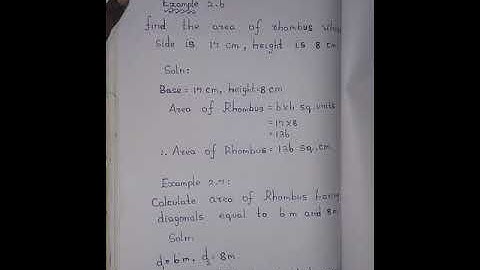 Example 2.6
find the area of rhombus whose
Side is 17 cm, height is 8 cm
Soln:
Base = 17 cm, height=8 cm
Area of Rhombus = bxh sq.units
= 17 x 8
= 136
∴ Area of Rhombus = 136 sq.cm
Example 2.7:
Calculate area of Rhombus having
diagonals equal to 6 m and 8m
Soln:
d₁ = 6m, d₂ = 8m